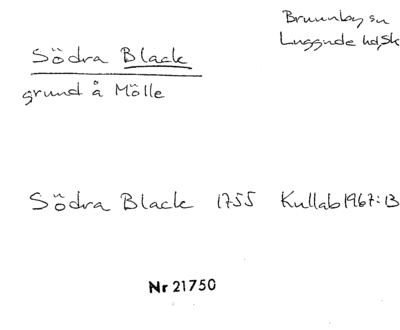 Brunnby sn
Luggude hd, Sk
Södra Black
grund å Mölle
Södra Black 1755 Kullab 1967:13
Nr 21750